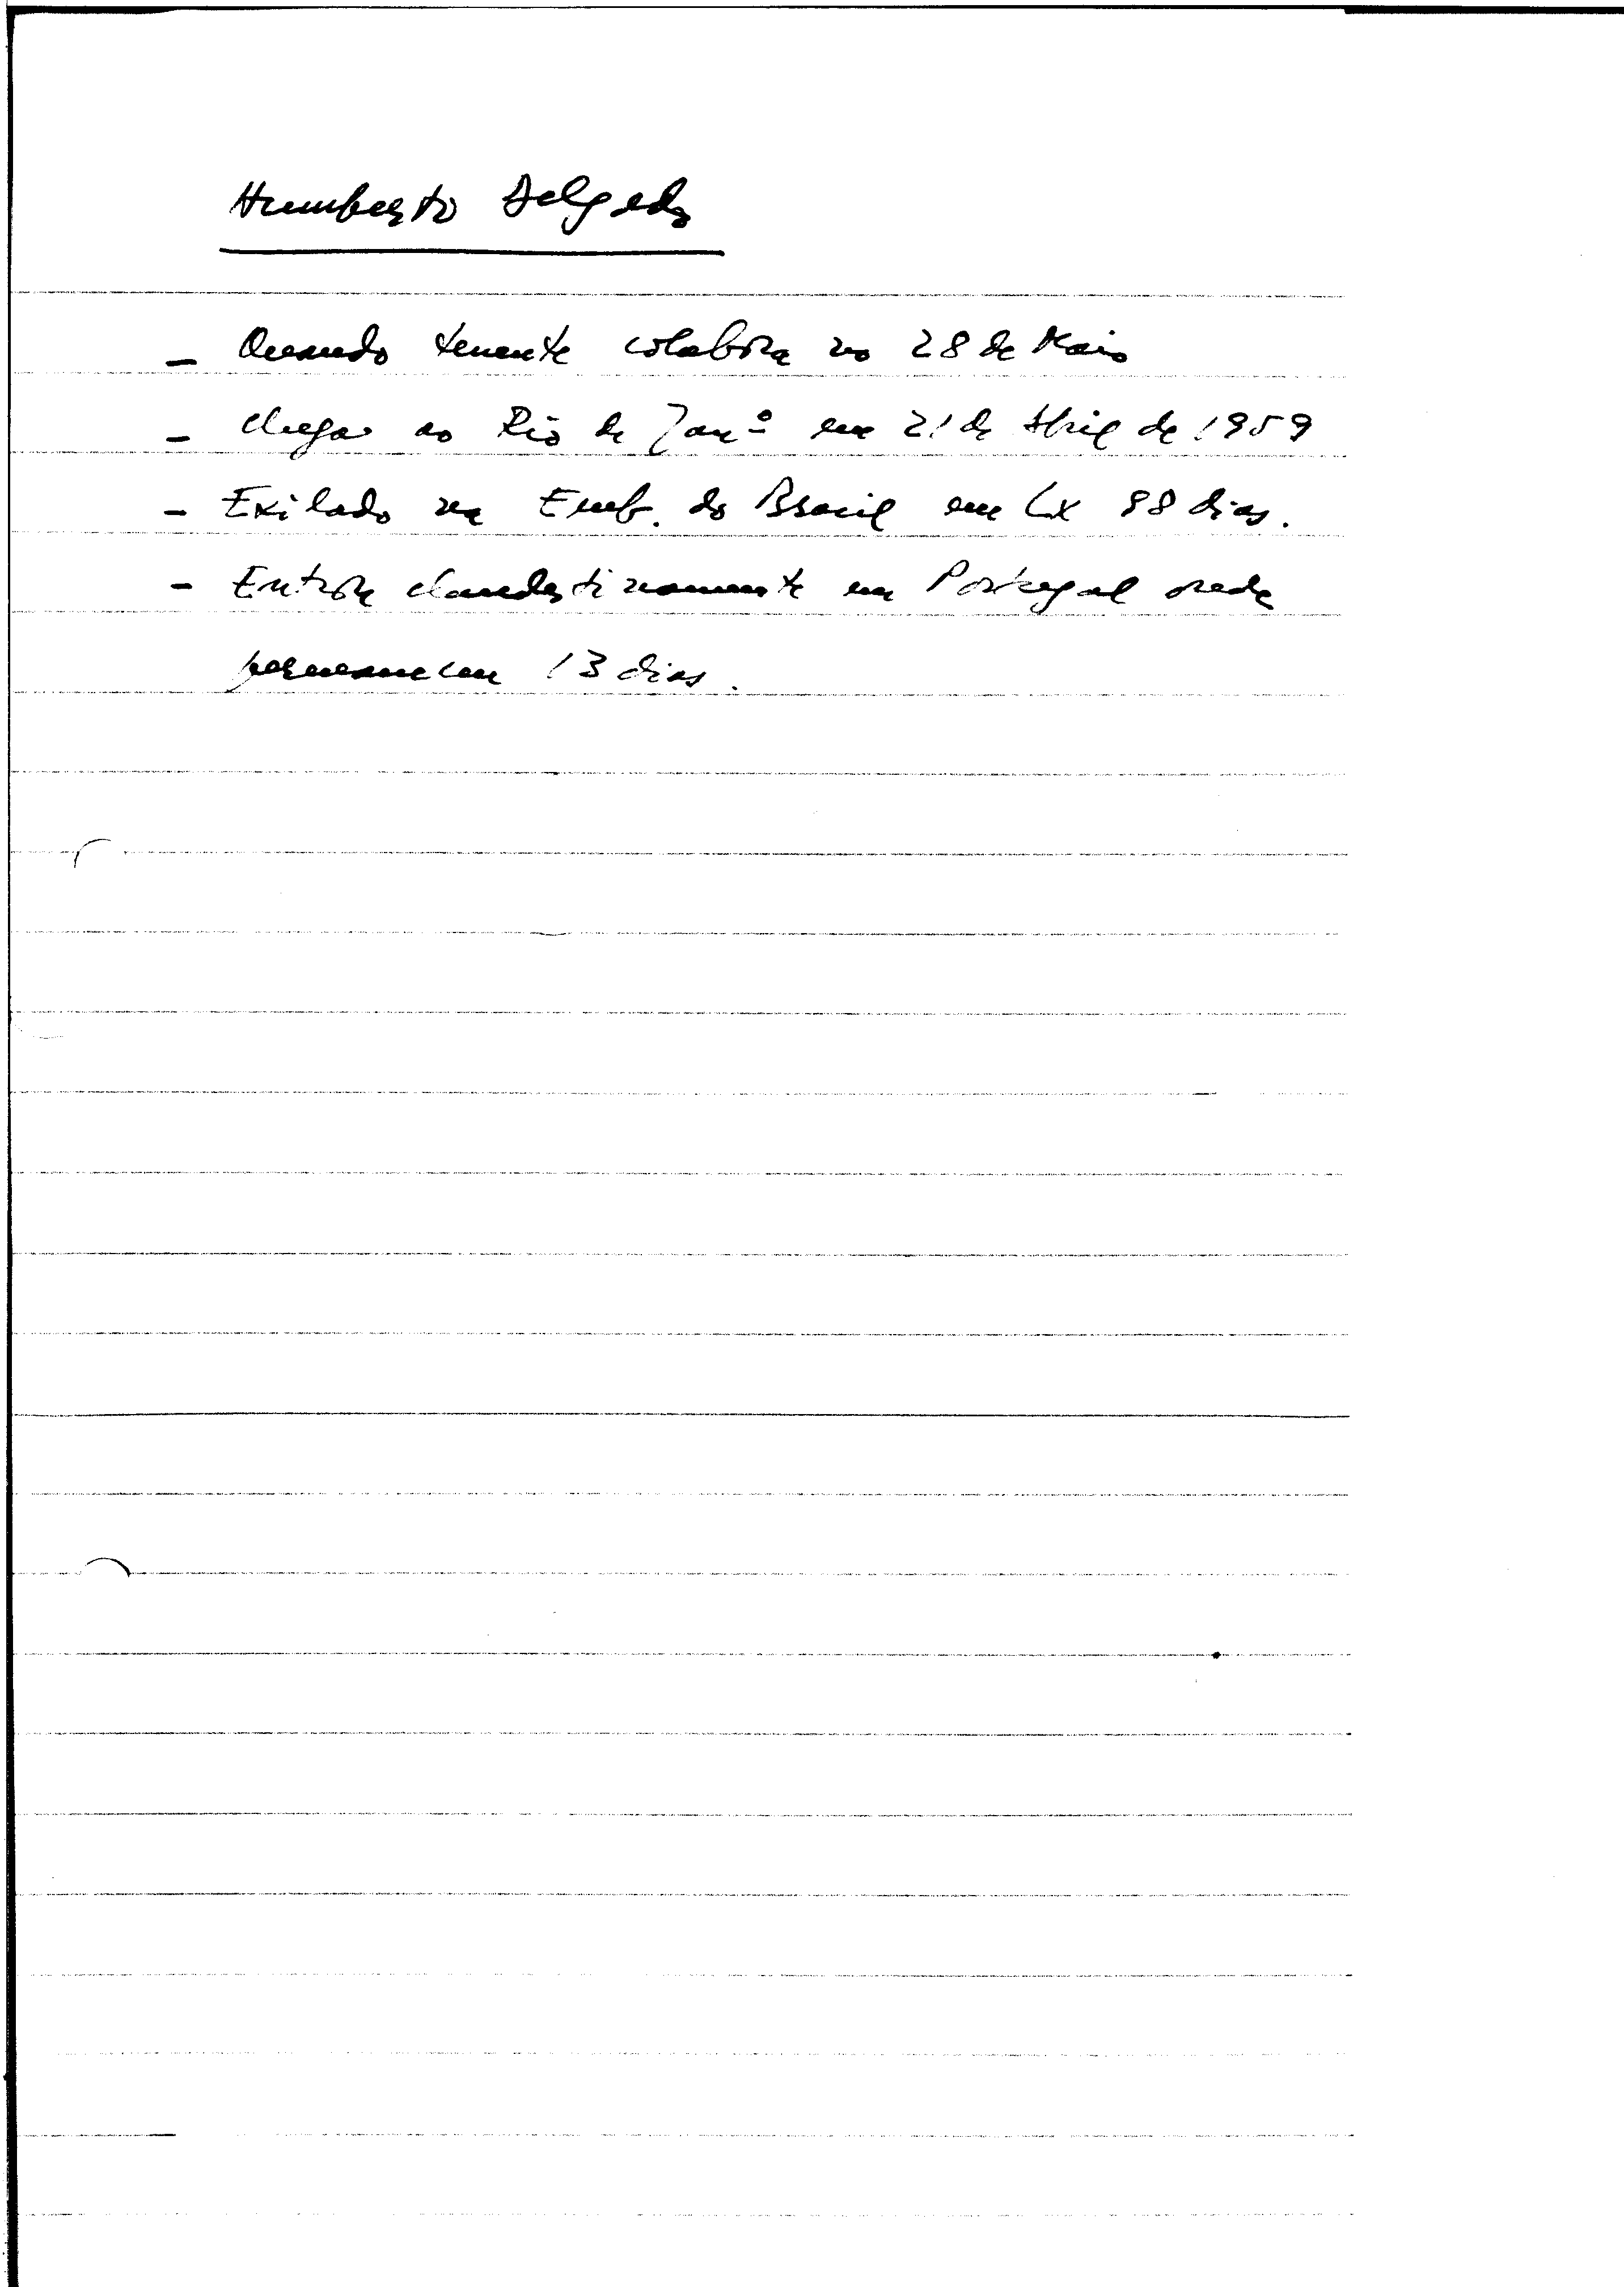 Humberto Delgado
- Quando tenente colabora no 28 de Maio
- Chega ao Rio de Janº em 21 de Abril de 1959
- Exilado na Emb. do Brasil em Lx 98 dias.
- Entra clandestinamente em Portugal onde
permaneceu 13 dias.